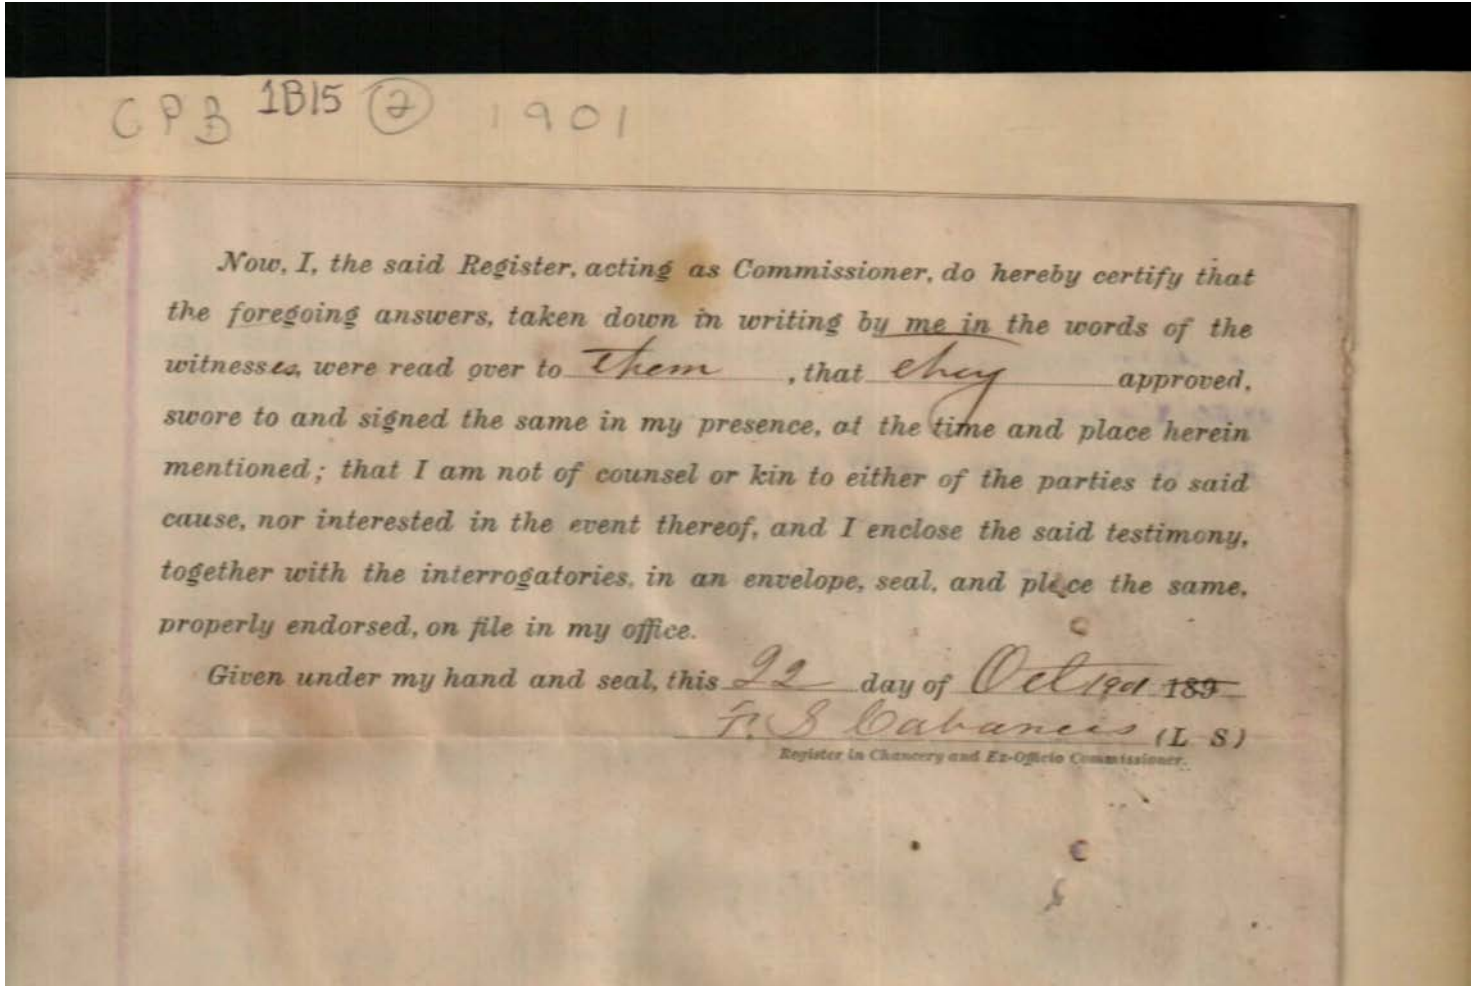 CPB 1B15 2 1901
Now, I, the said Register, acting as Commissioner, do hereby certify that
the foregoing answers, taken down in writing by me in the words of the
witnesses, were read over to them, that they approved,
swore to and signed the same in my presence, at the time and place herein
mentioned; that I am not of counsel or kin to either of the parties to said
cause, nor interested in the event thereof, and I enclose the said testimony,
together with the interrogatories, in an envelope, seal, and place the same,
properly endorsed, on file in my office.
Given under my hand and seal, this 22 day of Oct 1901 189
F. S Cabaness (L S)
Register in Chancery and Ex-Officio Commissioner.